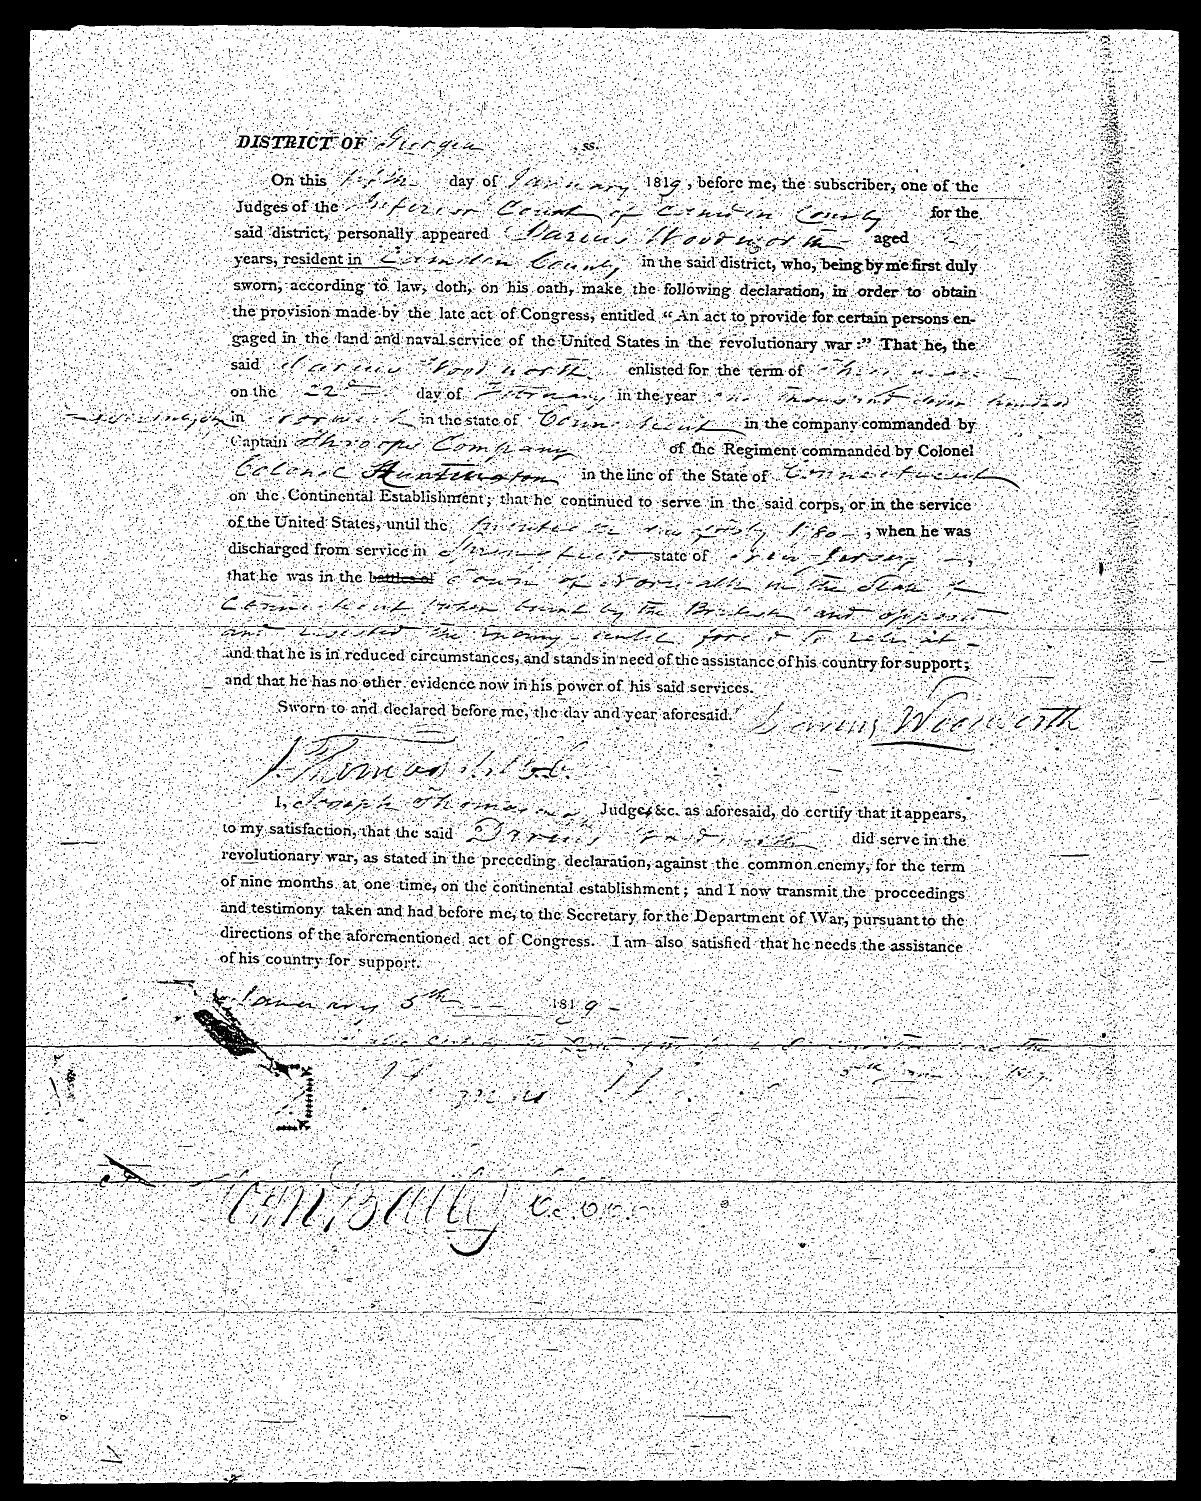 DISTRICT OF Georgia , ss.
On this fifth day of January 1819, before me, the subscriber, one of the
Judges of the Inferior Court of Camden County for the
said district, personally appeared Darius Woodworth aged
years, resident in Camden County in the said district, who, being by me first duly
sworn, according to law, doth, on his oath, make the following declaration, in order to obtain
the provision made by the late act of Congress, entitled "An act to provide for certain persons en-
gaged in the land and naval service of the United States in the revolutionary war:" That he, the
said Darius Woodworth enlisted for the term of
on the 22d day of February in the year one Thousand seven hundred
in Norwich in the state of Connecticut in the company commanded by
Captain Throops Company of the Regiment commanded by Colonel
Colonel Huntington in the line of the State of Connecticut
on the Continental Establishment; that he continued to serve in the said corps, or in the service
of the United States, until the 1780 -, when he was
discharged from service in Springfield state of New Jersey -,
that he was in the battles of Town of Norwalk in the State of
Connecticut when burnt by the British and opposed
and resisted the enemy until forced to retreat -
and that he is in reduced circumstances, and stands in need of the assistance of his country for support;
and that he has no other evidence now in his power of his said services.
Sworn to and declared before me, the day and year aforesaid. Darius Woodworth
J. Thomas
I, Joseph Thomas Judge, &c. as aforesaid, do certify that it appears,
to my satisfaction, that the said Darius Woodworth did serve in the
revolutionary war, as stated in the preceding declaration, against the common enemy, for the term
of nine months at one time, on the continental establishment; and I now transmit the proceedings
and testimony taken and had before me, to the Secretary for the Department of War, pursuant to the
directions of the aforementioned act of Congress. I am also satisfied that he needs the assistance
of his country for support.
January 5th 1819 -
5th
Baily